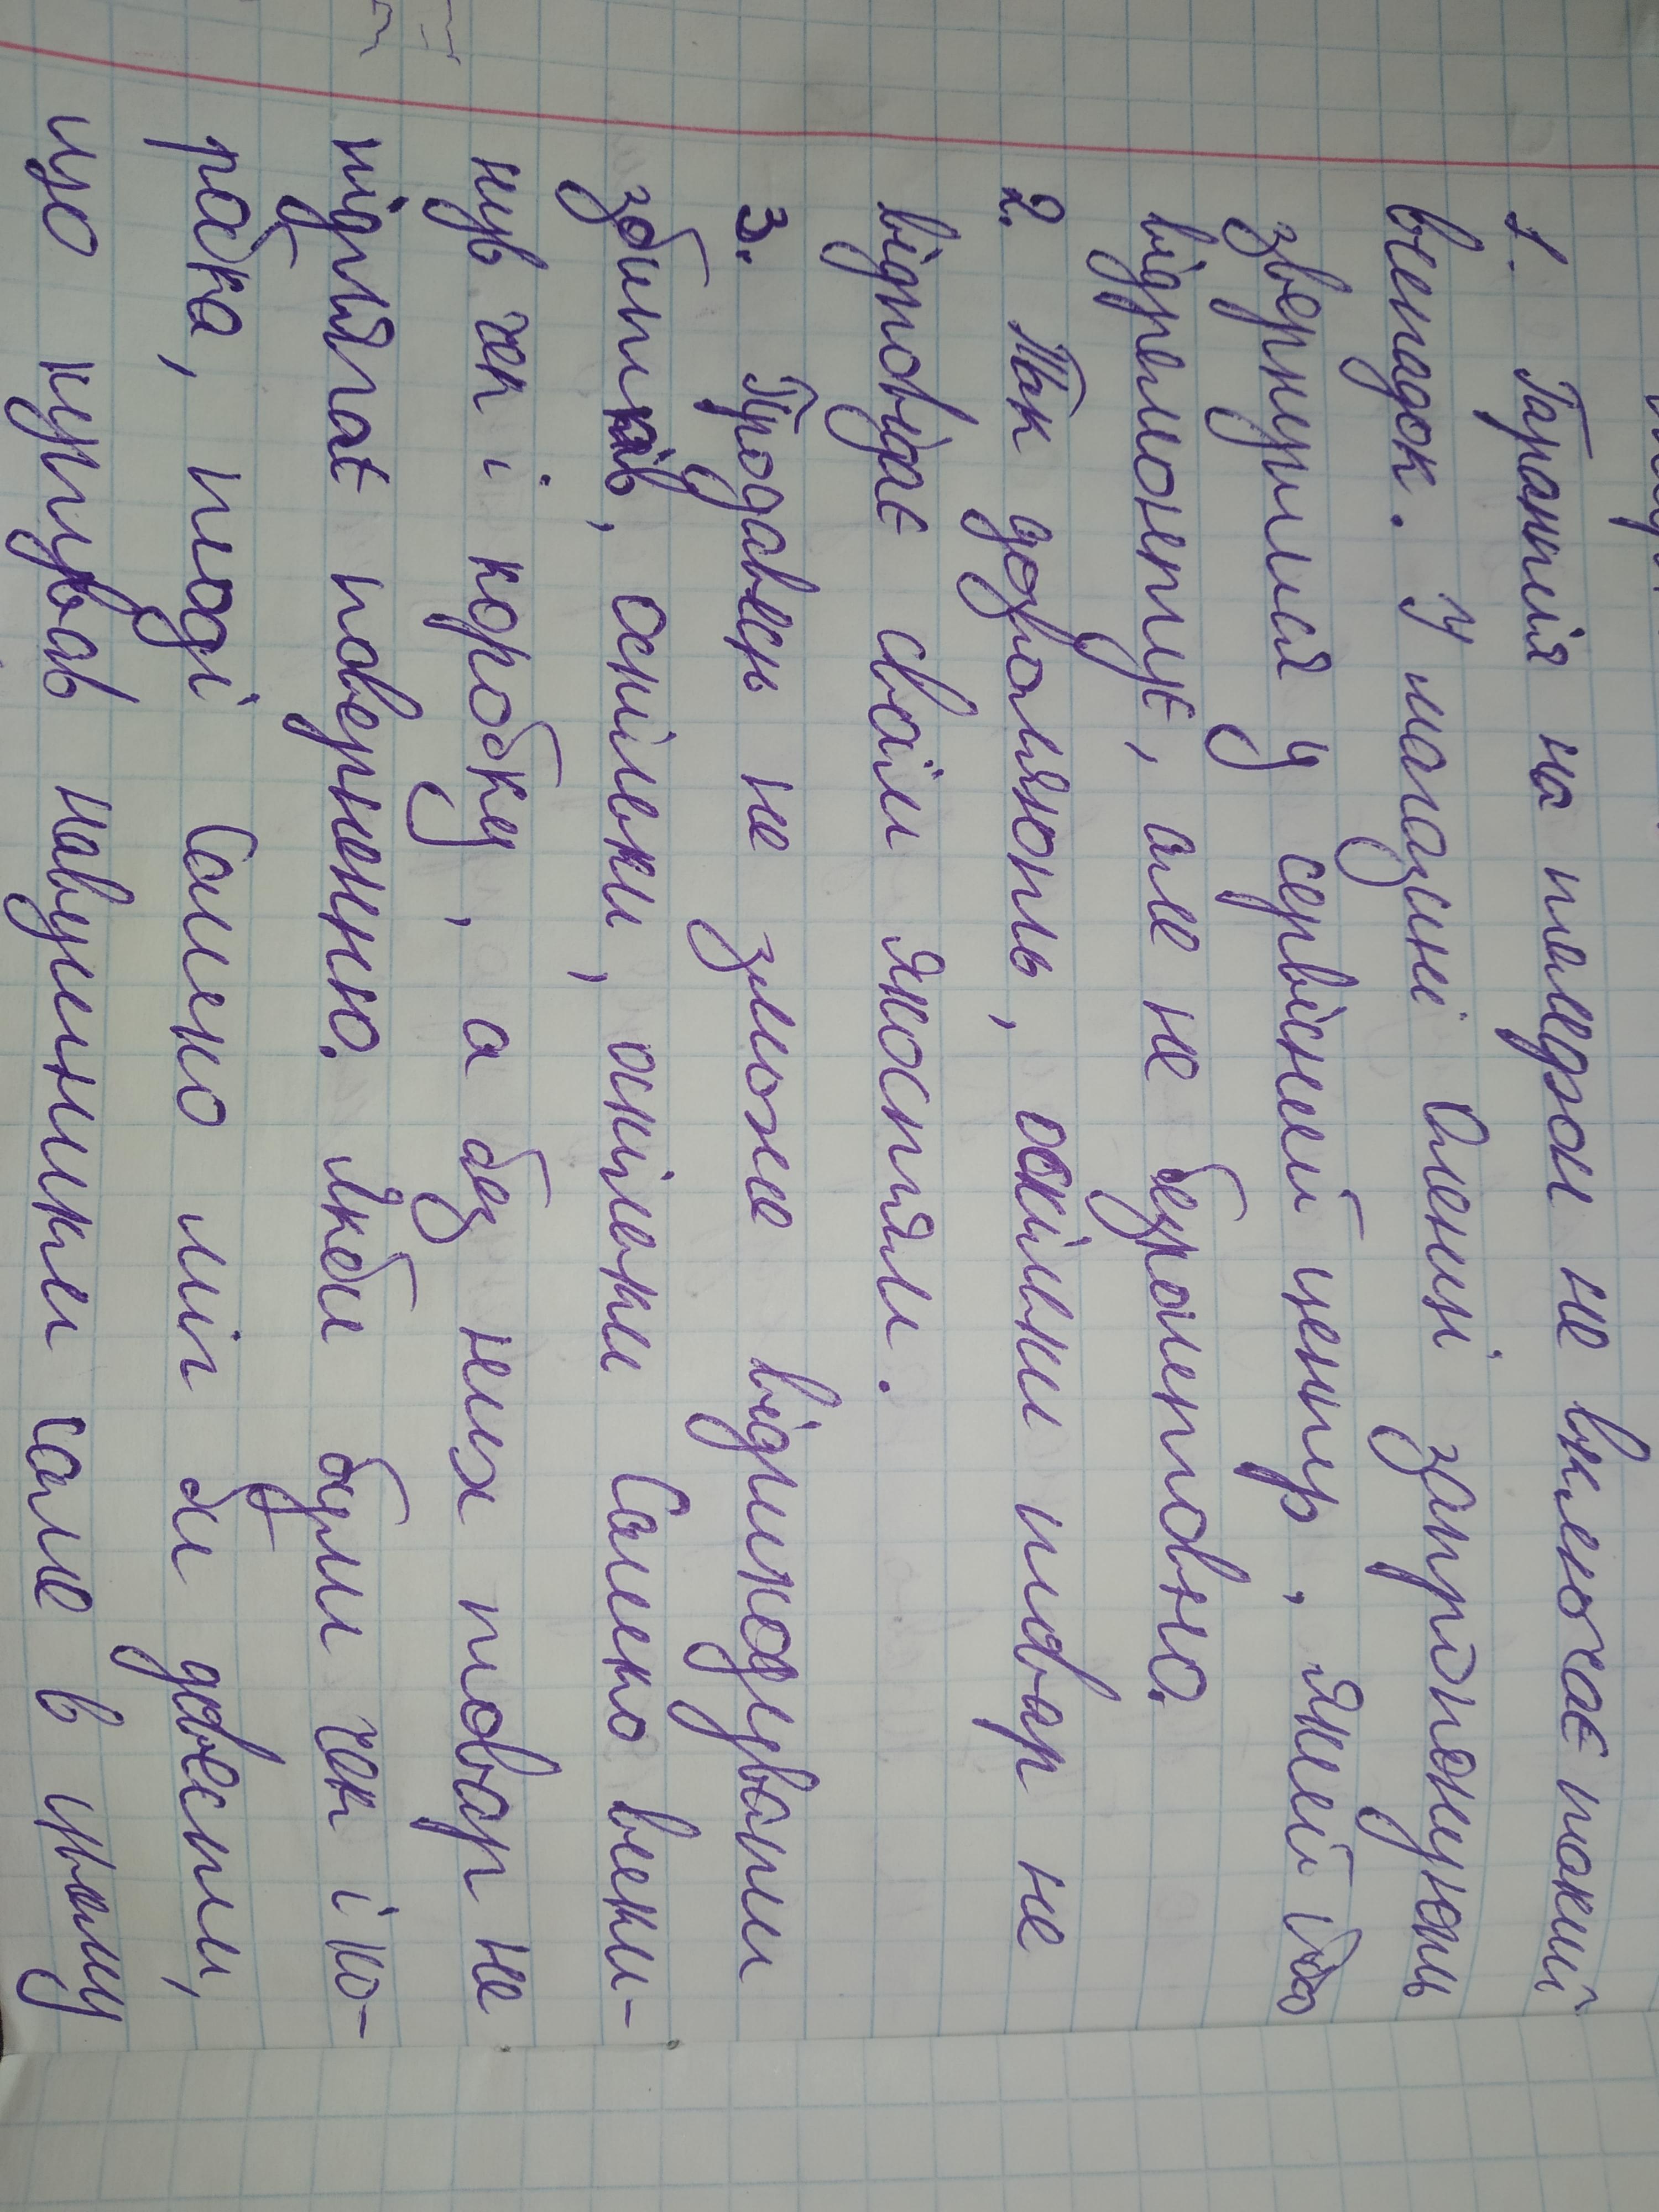 1. Гарантія на телефон не включає такий
випадок. У магазині Олені запропонують
звернутися у сервісний центр, який його
відремонтує, але не безролатно.
2. Так дозволяють, оскільки товар не
відповідає своїм якостям.
3. Продавець не зможе відшкодувати
збитків, оскільки, оскільки Салеко вики-
нув чек і коробку, а без них товар не
підлягає поверненню. Якби були чек і ко-
робка, тоді Салеко міг би довести,
що купував навушники саме в цьому